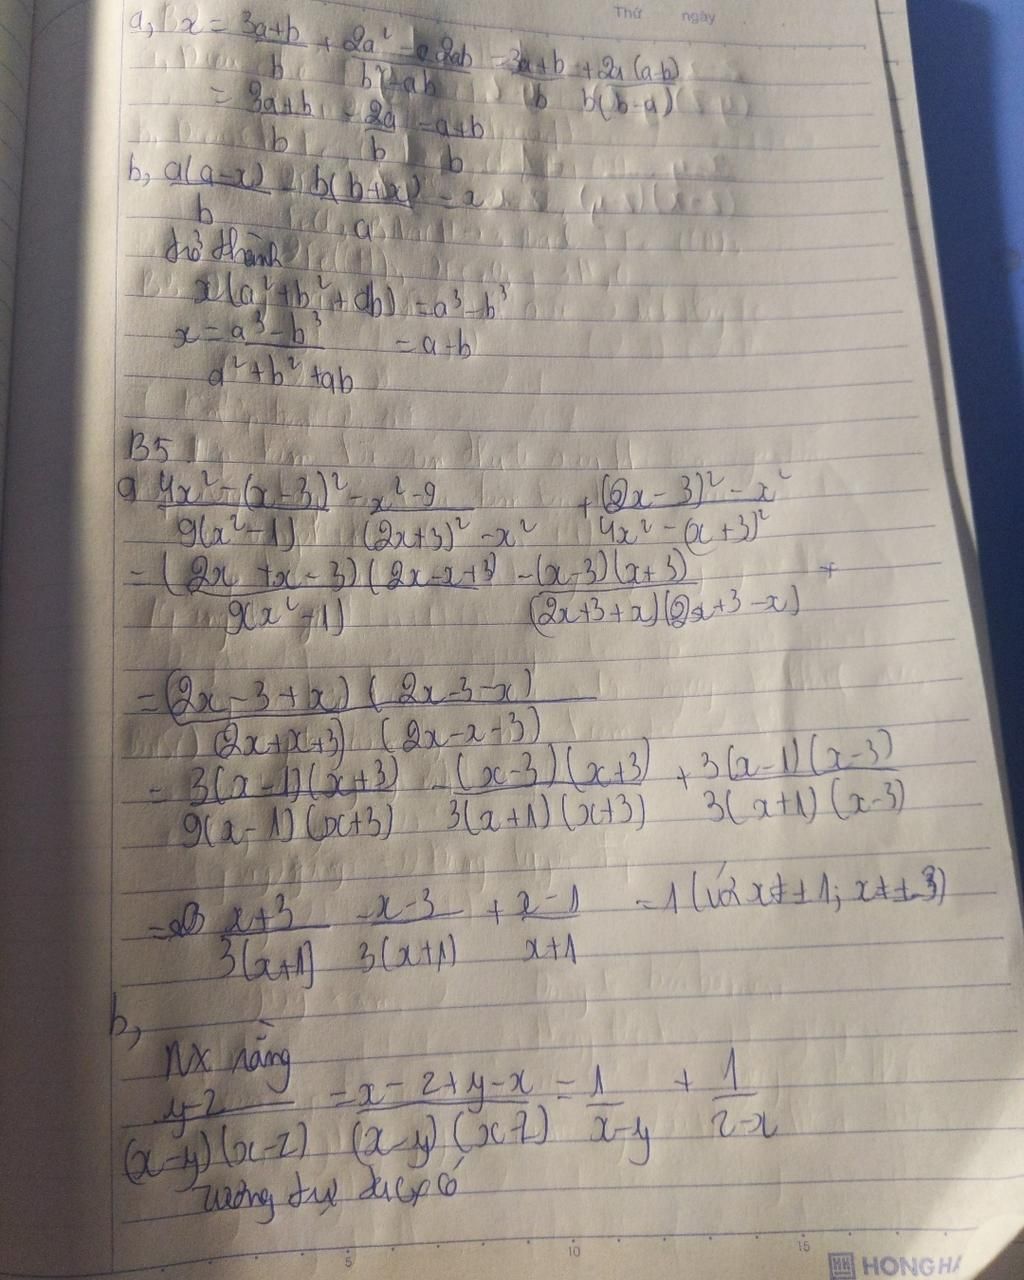 Thứ ngày
a, x = \frac{3a+b}{b} + \frac{2a² - 2ab}{b² - ab} = \frac{3a+b}{b} + \frac{2a(a-b)}{b(b-a)}
= \frac{3a+b}{b} - \frac{2a}{b} = \frac{a+b}{b}
b, \frac{a(a-x)}{b} - \frac{b(b+x)}{a} = x
trở thành
x(a²+b²+ab) = a³-b³
x = \frac{a³-b³}{a²+b²+ab} = a-b
B5
a \frac{4x²-(x-3)²}{9(x²-1)} - \frac{x²-9}{(2x+3)²-x²} + \frac{(2x-3)²-x²}{4x²-(x+3)²}
= \frac{(2x+x-3)(2x-x+3)}{9(x²-1)} - \frac{(x-3)(x+3)}{(2x+3+x)(2x+3-x)} +
= \frac{(2x-3+x)(2x-3-x)}{(2x+x+3)(2x-x-3)}
= \frac{3(x-1)(x+3)}{9(x-1)(x+3)} - \frac{(x-3)(x+3)}{3(x+1)(x+3)} + \frac{3(x-1)(x-3)}{3(x+1)(x-3)}
= \frac{x+3}{3(x+1)} - \frac{x-3}{3(x+1)} + \frac{x-1}{x+1} = 1 (với x≠±1; x≠±3)
b,
NX rằng
\frac{y-z}{(x-y)(x-z)} = \frac{x-z+y-x}{(x-y)(x-z)} = \frac{1}{x-y} + \frac{1}{z-x}
Tương tự ta có
5 10 15
HH HONG HA